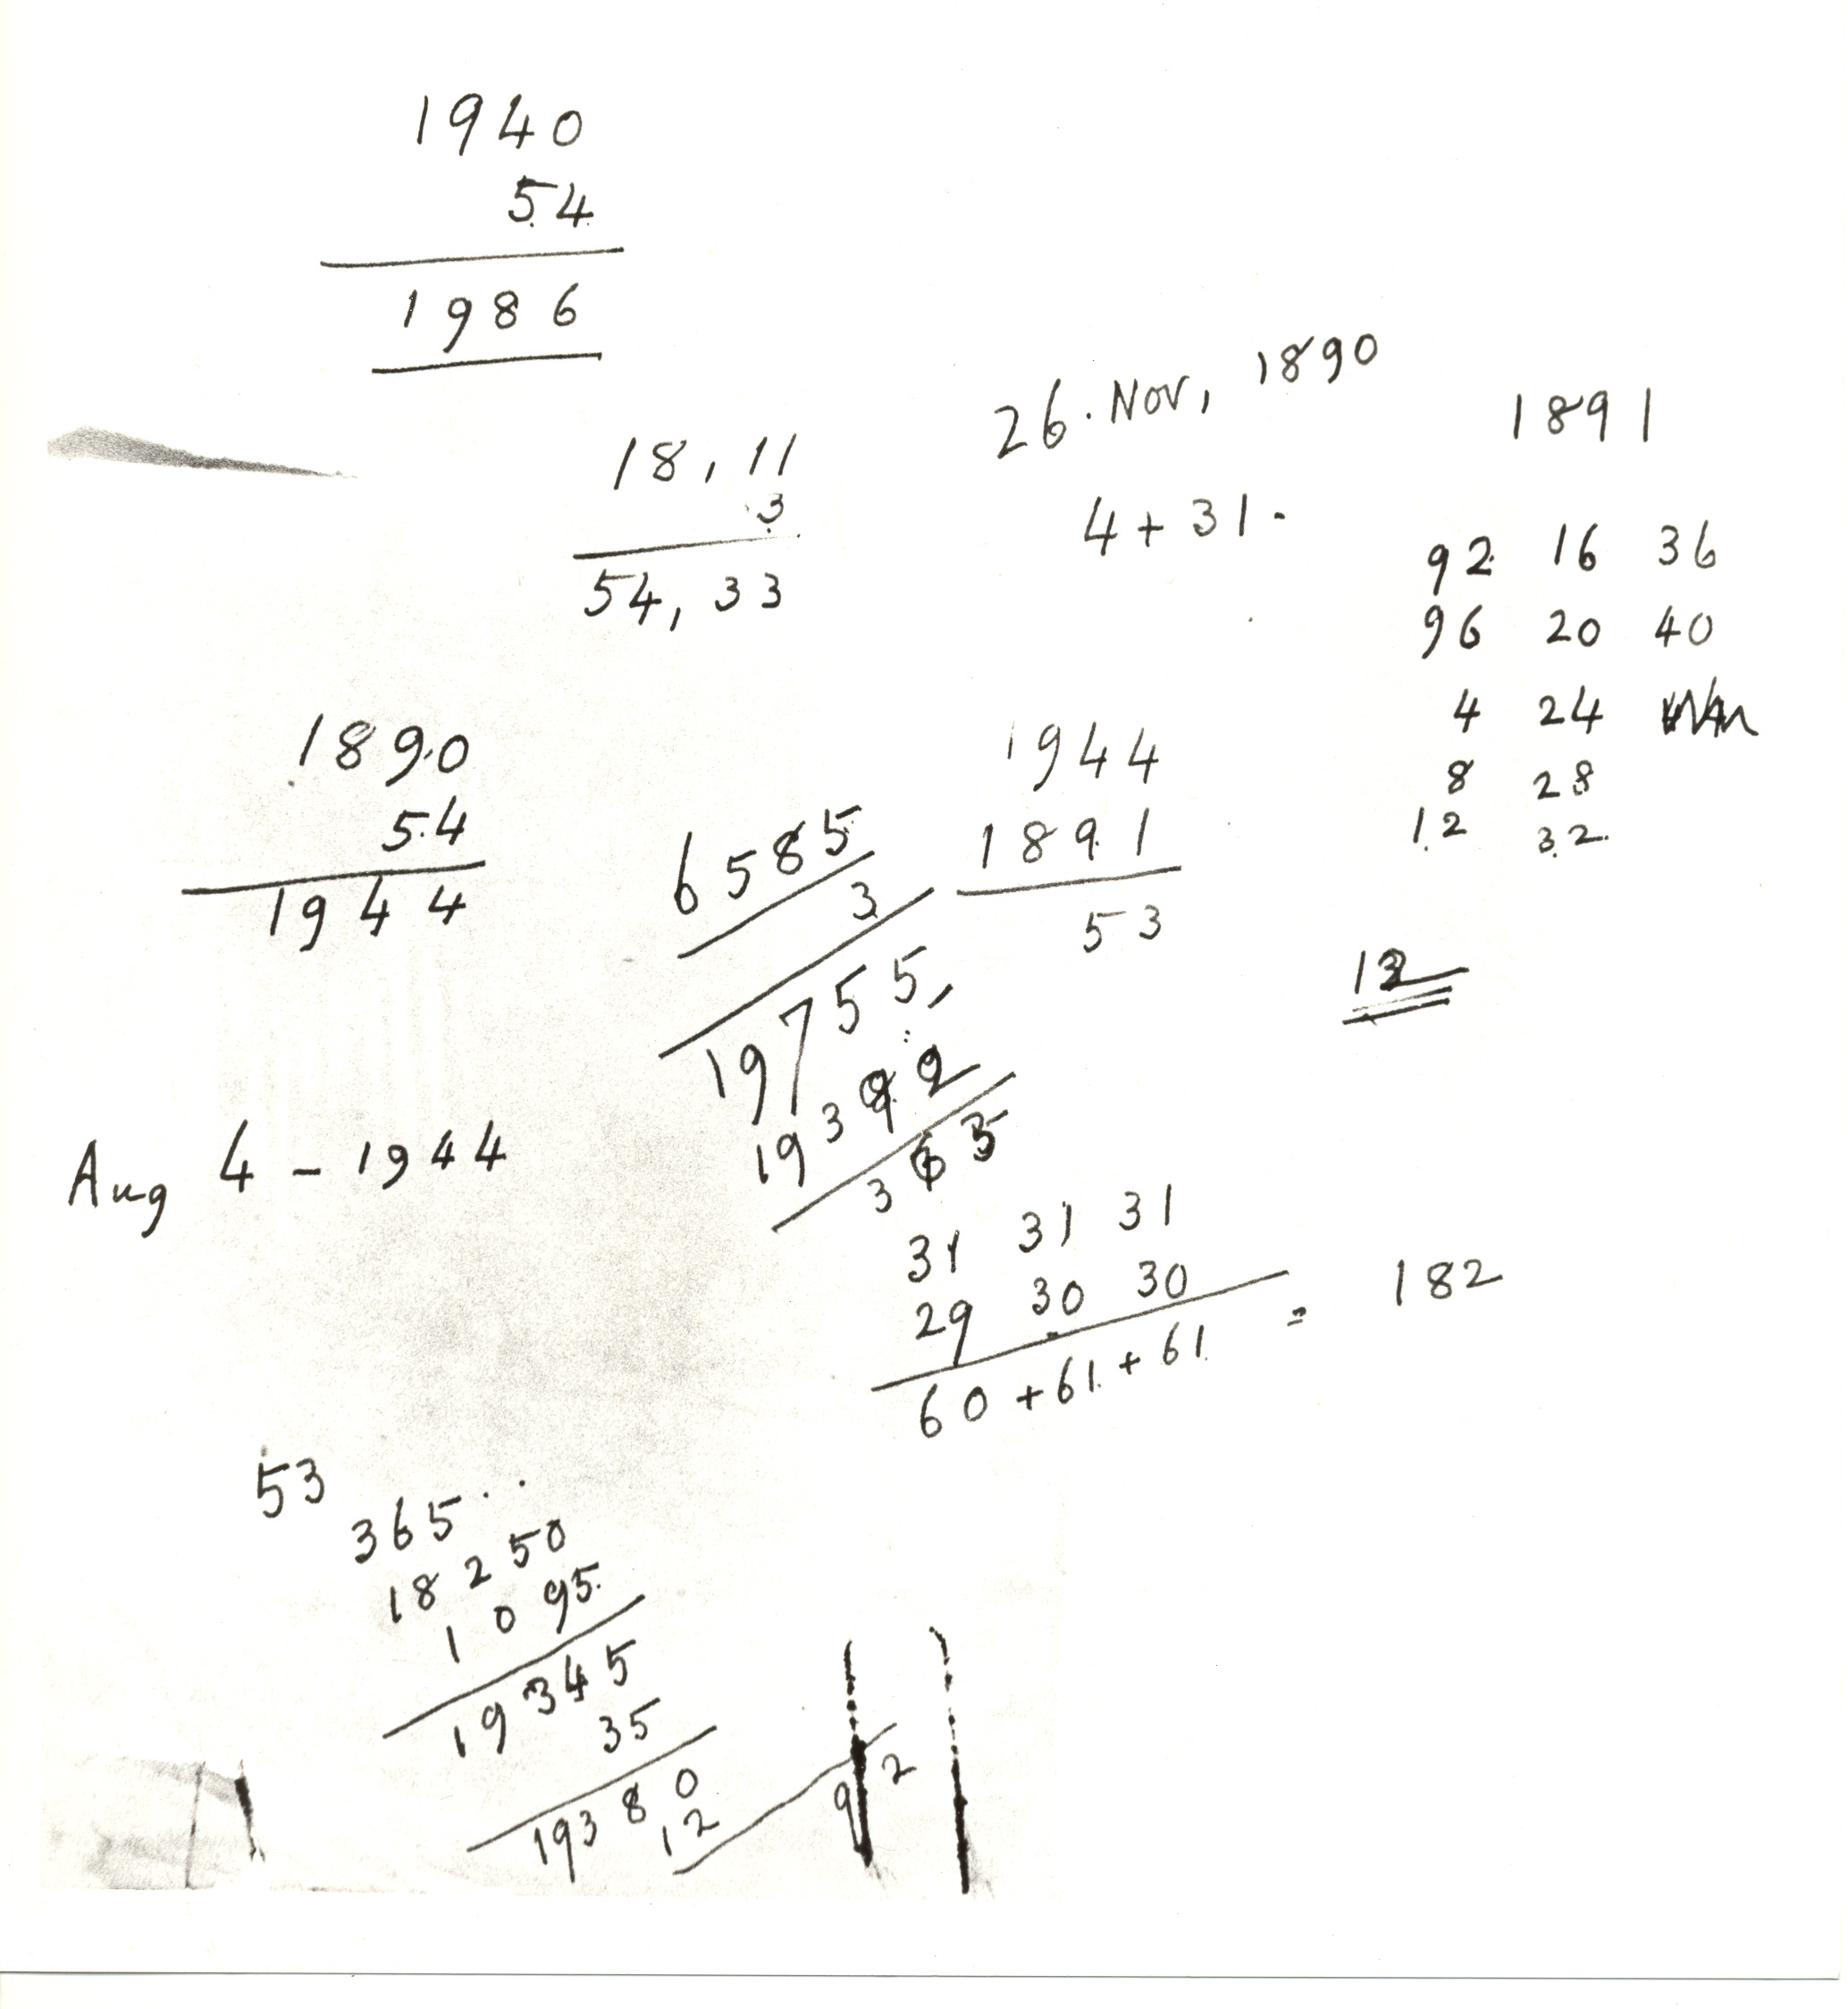 1940
54
1986
18, 11
3
54, 33
26. Nov, 1890
4 + 31.
1891
92 16 36
96 20 40
4 24
8 28
12 32
1890
54
1944
6585
3
19755,
19392
363
1944
1891
53
12
Aug 4 - 1944
31 31 31
29 30 30
60 + 61 + 61 = 182
53
365
18250
1095
19345
35
19380
12
92